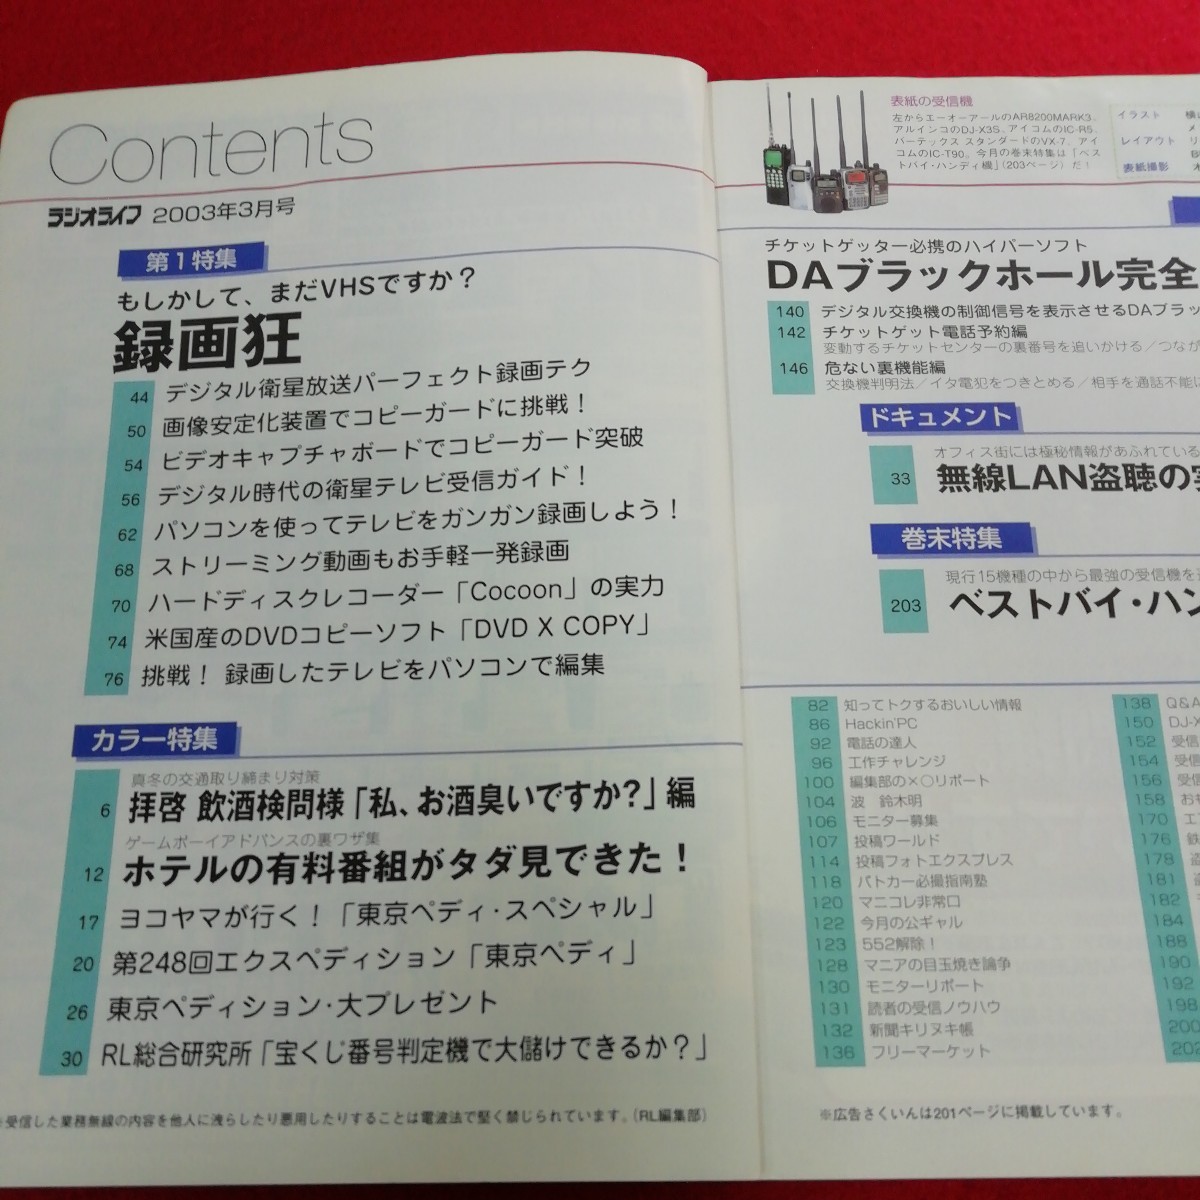 Contents
ラジオライフ 2003年3月号
第1特集
もしかして、まだVHSですか？
録画狂
44 デジタル衛星放送パーフェクト録画テク
50 画像安定化装置でコピーガードに挑戦！
54 ビデオキャプチャボードでコピーガード突破
56 デジタル時代の衛星テレビ受信ガイド！
62 パソコンを使ってテレビをガンガン録画しよう！
68 ストリーミング動画もお手軽一発録画
70 ハードディスクレコーダー「Cocoon」の実力
74 米国産のDVDコピーソフト「DVD X COPY」
76 挑戦！ 録画したテレビをパソコンで編集
カラー特集
真冬の交通取り締まり対策
6 拝啓 飲酒検問様「私、お酒臭いですか？」編
ゲームボーイアドバンスの裏ワザ集
12 ホテルの有料番組がタダ見できた！
17 ヨコヤマが行く！「東京ペディ・スペシャル」
20 第248回エクスペディション「東京ペディ」
26 東京ペディション・大プレゼント
30 RL総合研究所「宝くじ番号判定機で大儲けできるか？」
受信した業務無線の内容を他人に洩らしたり悪用したりすることは電波法で堅く禁じられています。（RL編集部）
表紙の受信機
左からエーオーアールのAR8200MARK3、
アルインコのDJ-X3S、アイコムのIC-R5、
バーテックス スタンダードのVX-7、アイ
コムのIC-T90。今月の巻末特集は「ベス
トバイ・ハンディ機」（203ページ）だ！
イラスト
レイアウト
表紙撮影
チケットゲッター必携のハイパーソフト
DAブラックホール完全
140 デジタル交換機の制御信号を表示させるDAブラッ
142 チケットゲット電話予約編
変動するチケットセンターの裏番号を追いかける／つなが
146 危ない裏機能編
交換機判明法／イタ電犯をつきとめる／相手を通話不能に
ドキュメント
オフィス街には極秘情報があふれている
33 無線LAN盗聴の
巻末特集
現行15機種の中から最強の受信機を
203 ベストバイ・ハン
82 知ってトクするおいしい情報
86 Hackin'PC
92 電話の達人
96 工作チャレンジ
100 編集部の×○リポート
104 波 鈴木明
106 モニター募集
107 投稿ワールド
114 投稿フォトエクスプレス
118 パトカー必撮指南塾
120 マニコレ非常口
122 今月の公ギャル
123 552解除！
128 マニアの目玉焼き論争
130 モニターリポート
131 読者の受信ノウハウ
132 新聞キリヌキ帳
136 フリーマーケット
138 Q&A
150 DJ-X
152 受信
154 受信
156 受信
158 おも
170 エア
176 鉄
178
181
182
184
188
190
192
198
200
202
※広告さくいんは201ページに掲載しています。